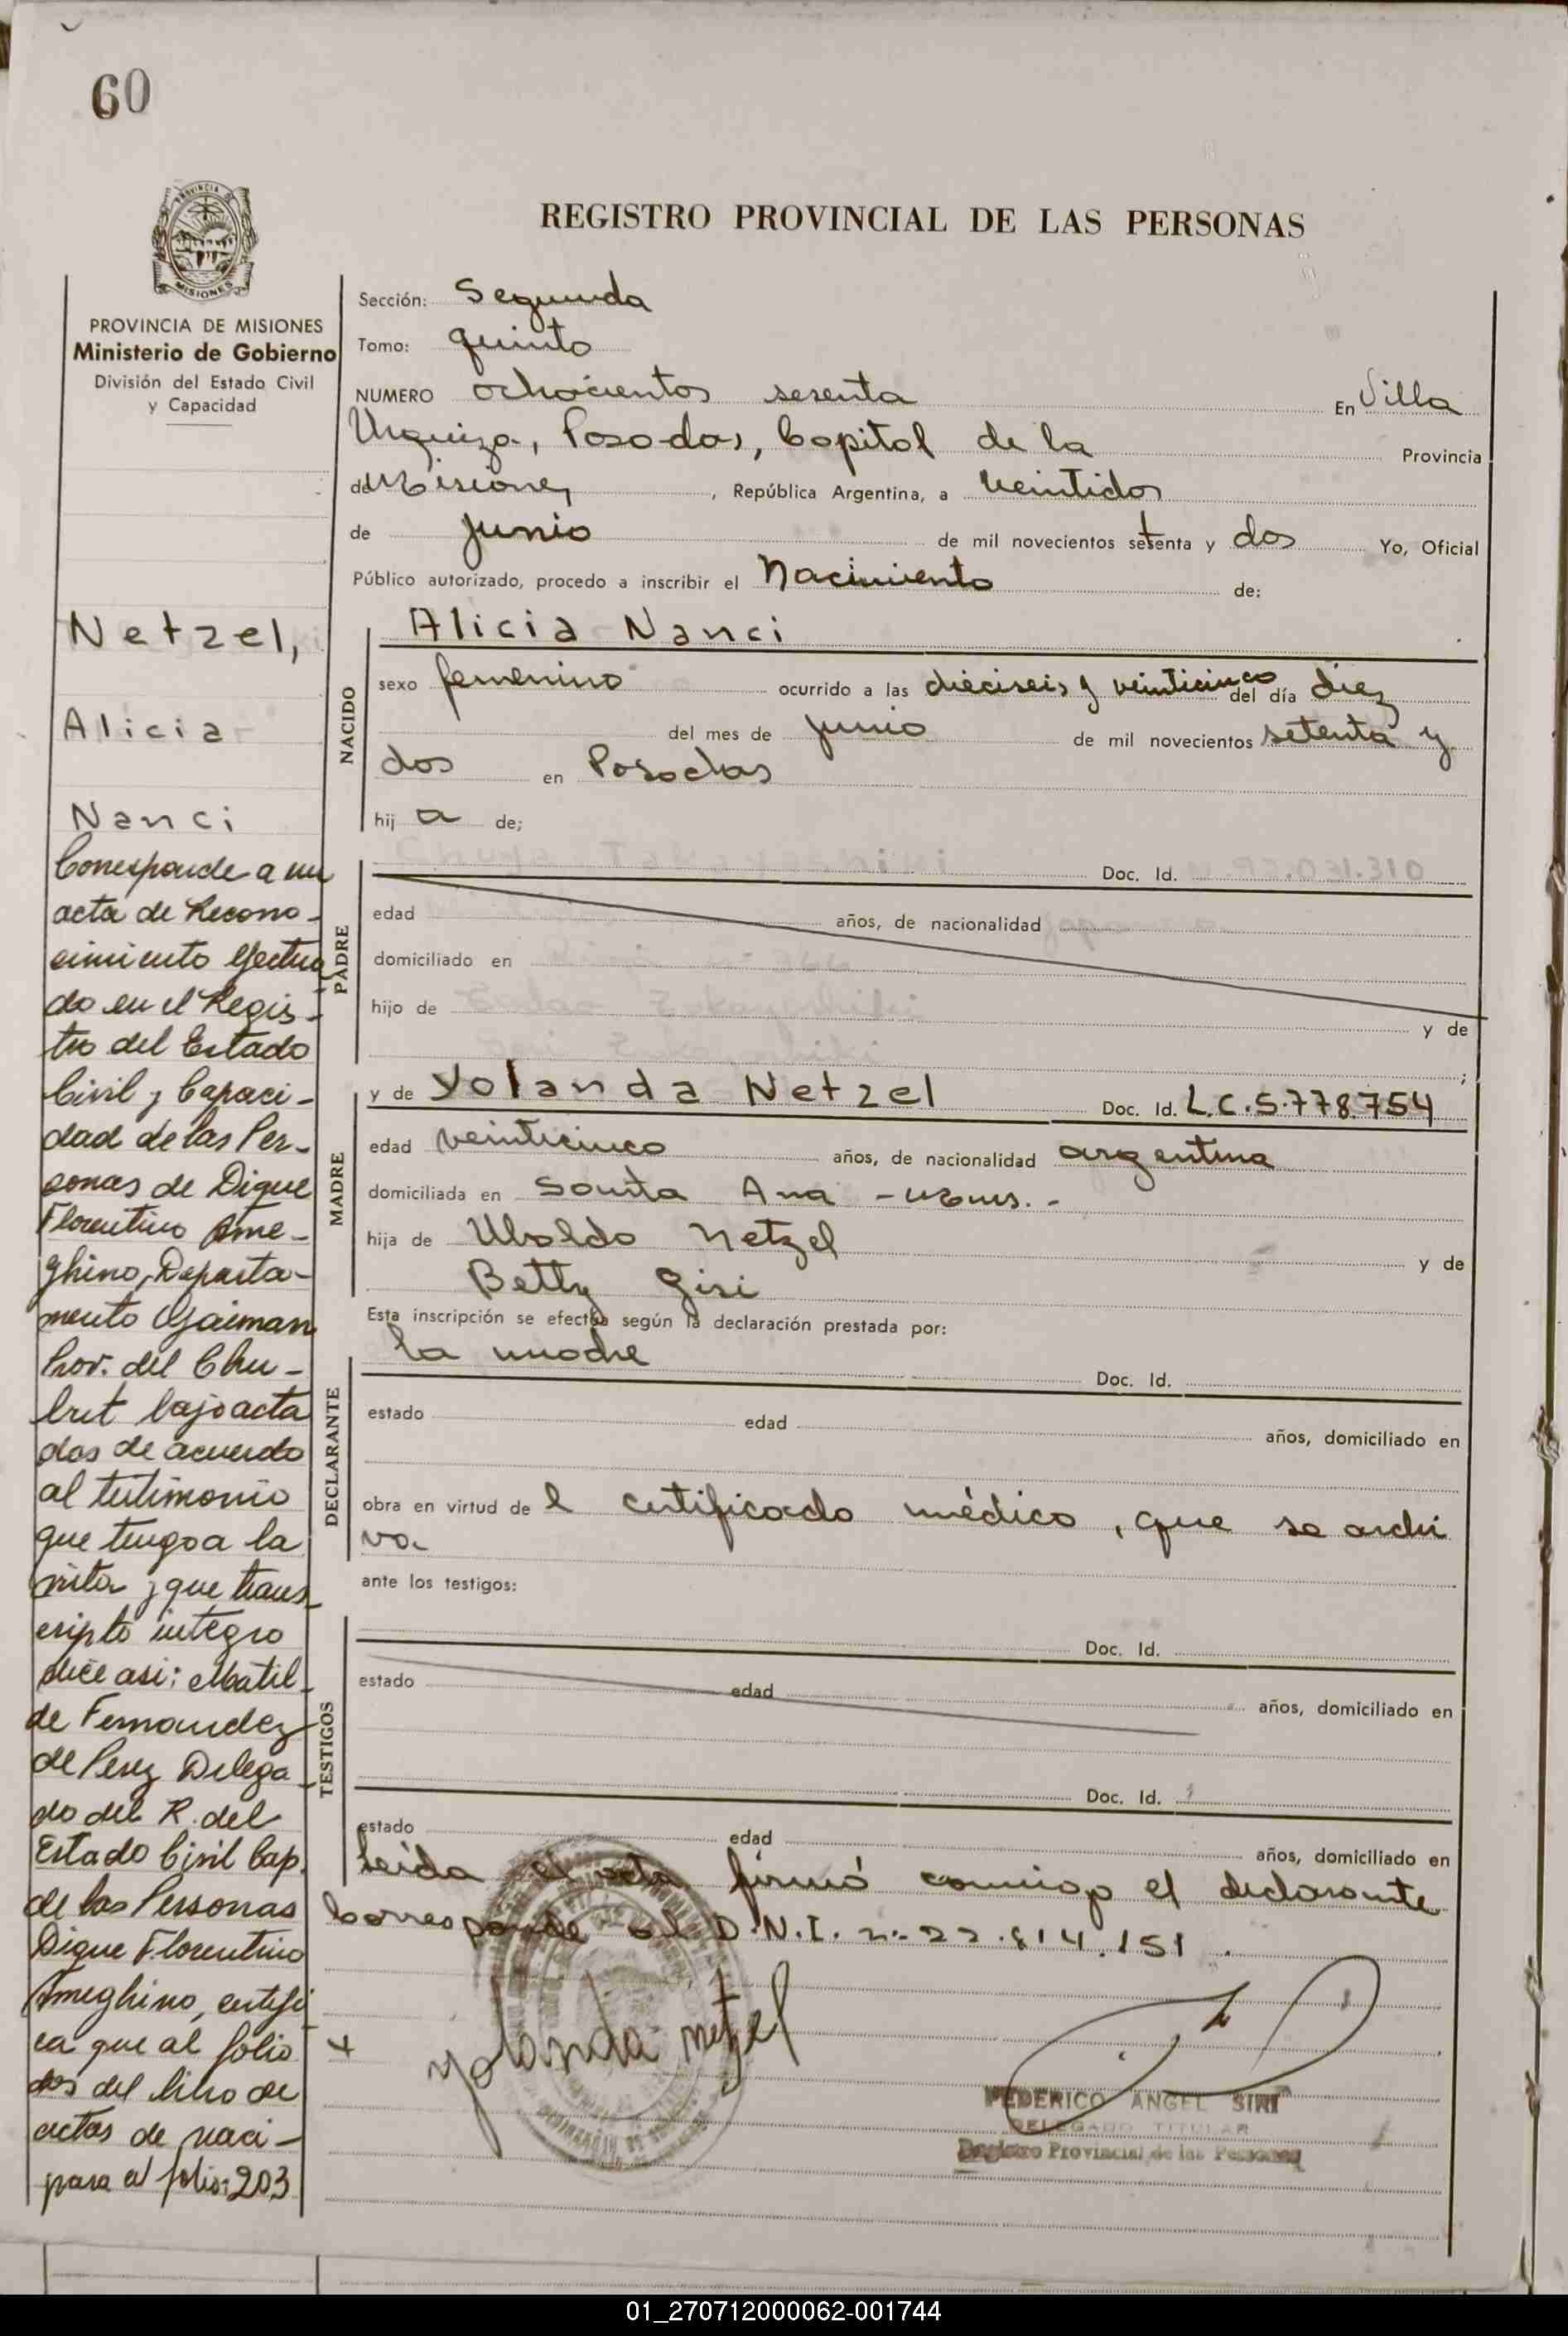 60
PROVINCIA
MISIONES
REGISTRO PROVINCIAL DE LAS PERSONAS
PROVINCIA DE MISIONES
Ministerio de Gobierno
División del Estado Civil
y Capacidad
Sección: Segunda
Tomo: quinto
NUMERO ochocientos sesenta En Villa
Urquiza, Posadas, Capital de la Provincia
de Misiones, República Argentina, a veintidos
de junio de mil novecientos setenta y dos Yo, Oficial
Público autorizado, procedo a inscribir el Nacimiento de:
Netzel,
Alicia
Nanci
NACIDO
Alicia Nanci
sexo femenino ocurrido a las dieciseis y veinticinco del día diez
del mes de junio de mil novecientos setenta y
dos en Posadas
hij a de;
PADRE
Doc. Id.
edad años, de nacionalidad
domiciliado en
hijo de y de
;
MADRE
y de Yolanda Netzel Doc. Id. L.C.5.778.754
edad veinticinco años, de nacionalidad argentina
domiciliada en Santa Ana -
hija de Ubaldo Netzel y de
Betty Gisi
Esta inscripción se efectúa según la declaración prestada por:
DECLARANTE
la madre Doc. Id.
estado edad años, domiciliado en
obra en virtud de l certificado médico, que se archi
va.
ante los testigos:
TESTIGOS
Doc. Id.
estado edad años, domiciliado en
Doc. Id.
estado edad años, domiciliado en
Leida el acta firmó conmigo el declarante
Corresponde al D.N.I. nº 22.814.151.
yolanda netzel
FEDERICO ANGEL SIRI
DELEGADO TITULAR
Registro Provincial de las Personas
Corresponde a un
acta de Recono-
cimiento efectua
do en el Regis-
tro del Estado
Civil y Capaci-
dad de las Per-
sonas de Dique
Florentino Ame-
ghino, Departa-
mento Gaiman
Prov. del Chu-
but bajo acta
dos de acuerdo
al testimonio
que tengo a la
vista y que trans-
cripto integro
dice asi: Matil-
de Fernandez
de Perez Delega-
do del R. del
Estado Civil Cap.
de las Personas
Dique Florentino
Ameghino, certifi
ca que al folio
dos del libro de
actas de naci-
pasa al folio: 203
01_270712000062-001744